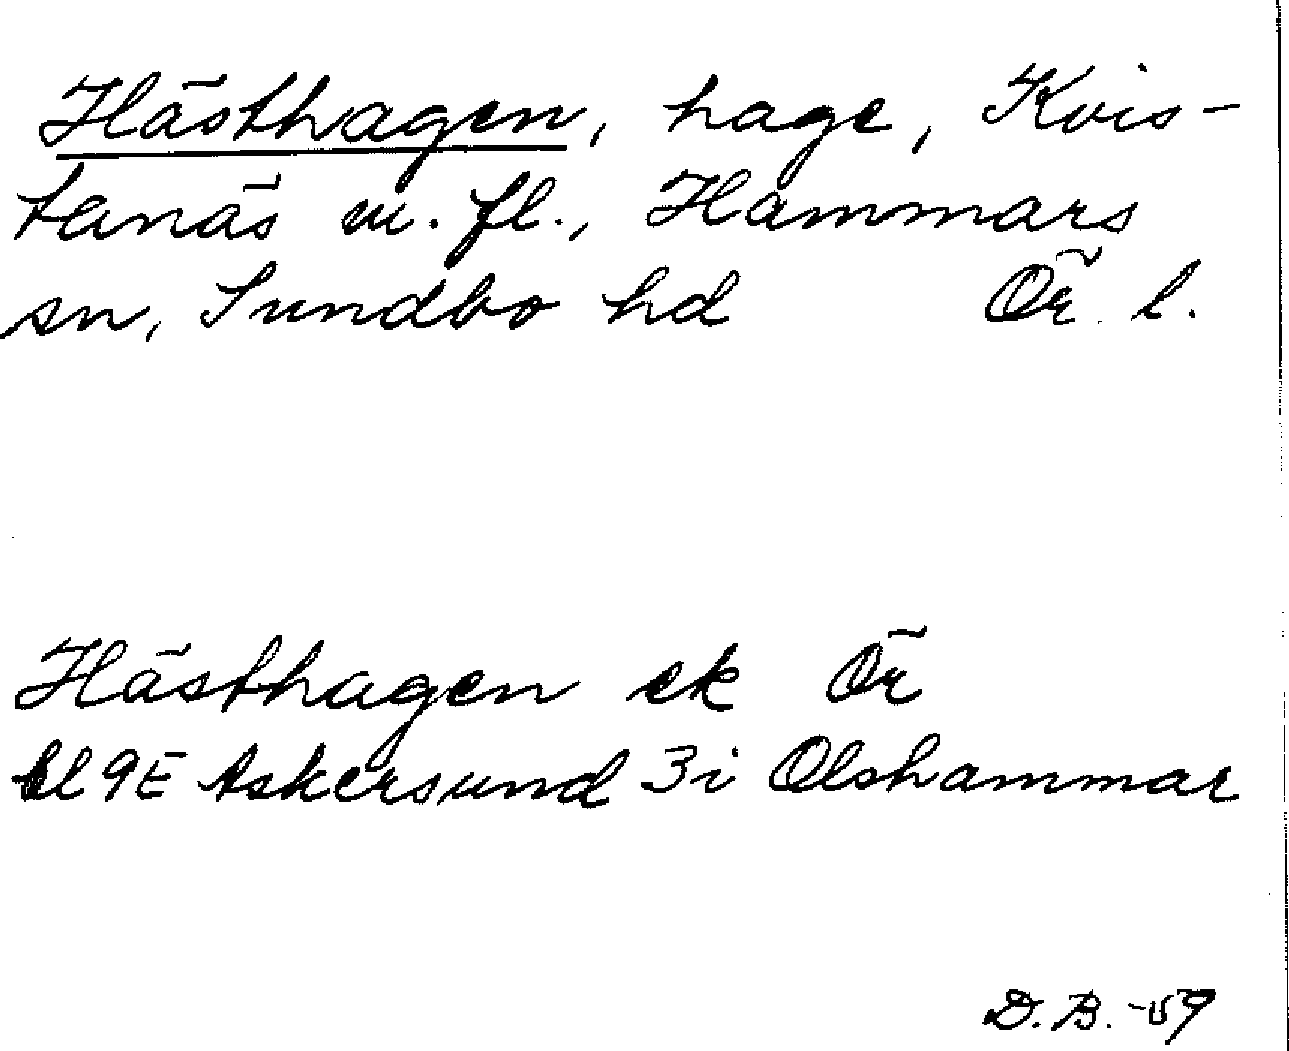 Hästhagen, hage, Kvis-
tanäs m. fl., Hammars
sn, Sundbo hd Ör. l.
Hästhagen ek Ör
bl 9E Askersund 3i Olshammar
D. B. -59